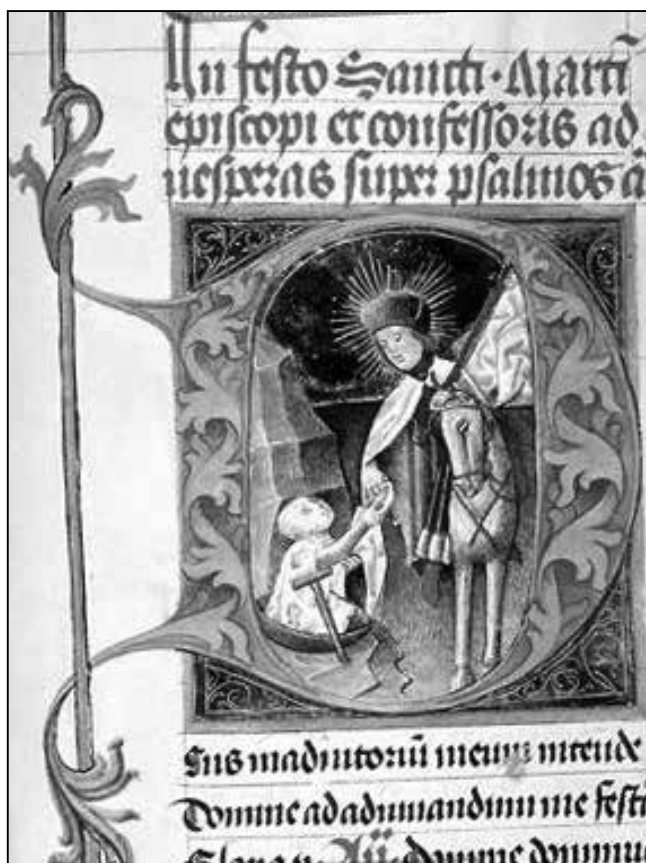 In festo Sancti · Marti
episcopi et confessoris ad
uesperas super psalmos a
Deus in adiutoriū meum intende
Domine ad adiuuandum me festi
Gloria domine